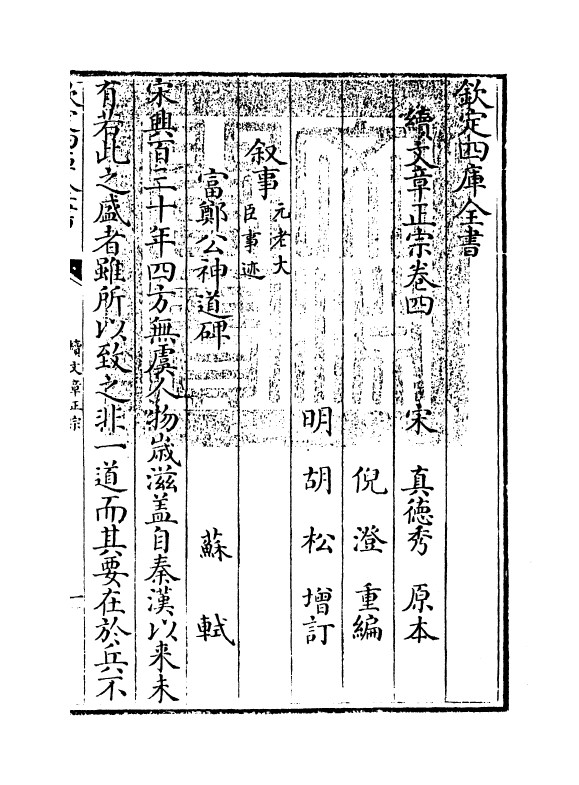 欽定四庫全書
續文章正宗卷四
宋 真徳秀 原本
倪澄 重編
明 胡松 增訂
叙事 元老大臣事迹
富鄭公神道碑 蘇軾
宋興百三十年四方無虞人物歳滋盖自秦漢以來未
有若此之盛者雖所以致之非一道而其要在於兵不
續文章正宗
一